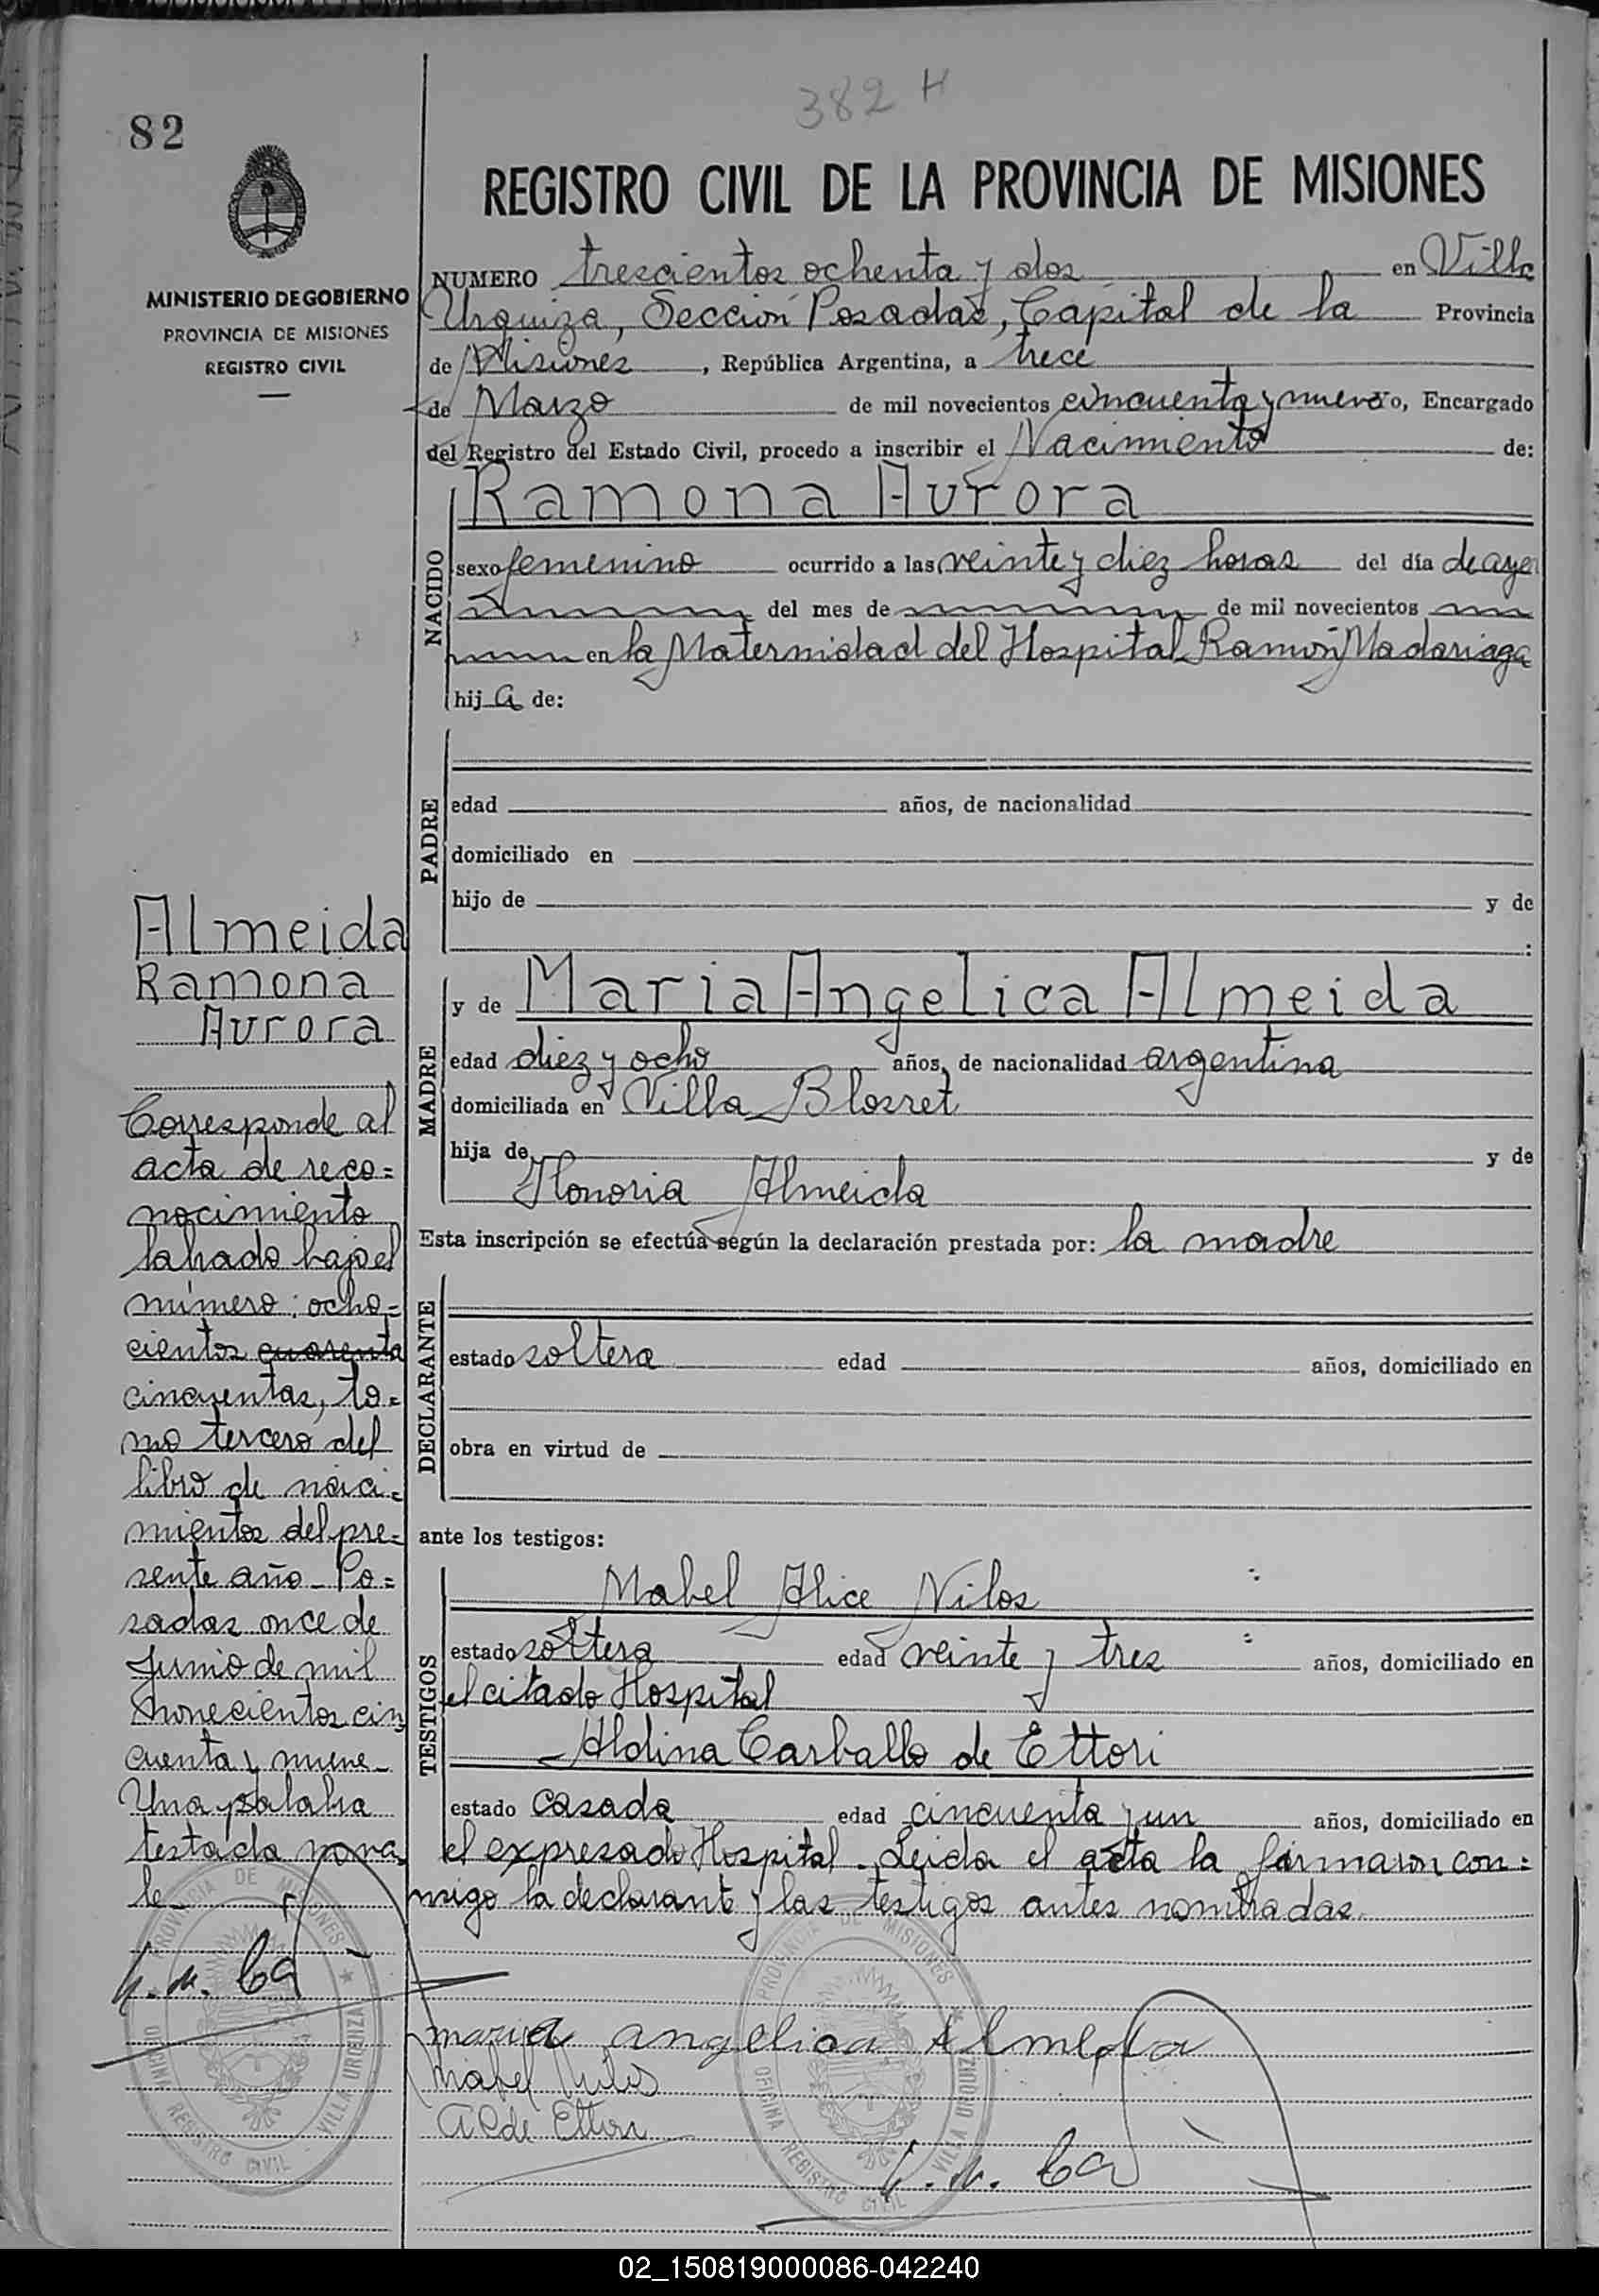 382 H
82
REGISTRO CIVIL DE LA PROVINCIA DE MISIONES
MINISTERIO DE GOBIERNO
PROVINCIA DE MISIONES
REGISTRO CIVIL
NUMERO trescientos ochenta y dos en Villa
Urquiza, Sección Posadas, Capital de la Provincia
de Misiones, República Argentina, a trece
de Marzo de mil novecientos cincuenta y nueve yo, Encargado
del Registro del Estado Civil, procedo a inscribir el Nacimiento de:
NACIDO
Ramona Aurora
sexo femenino ocurrido a las veinte y diez horas del día de ayer
del mes de de mil novecientos
en la Maternidad del Hospital Ramón Madariaga
hija de:
PADRE
edad años, de nacionalidad
domiciliado en
hijo de y de
:
MADRE
y de Maria Angelica Almeida
edad diez y ocho años, de nacionalidad argentina
domiciliada en Villa Blosret
hija de y de
Honoria Almeida
Esta inscripción se efectúa según la declaración prestada por: la madre
DECLARANTE
estado soltera edad años, domiciliado en
obra en virtud de
ante los testigos:
TESTIGOS
Mabel Alice Nilos
estado soltera edad veinte y tres años, domiciliado en
el citado Hospital
Aldina Carballo de Ettori
estado casada edad cincuenta y un años, domiciliado en
el expresado Hospital. Leida el acta la firmaron con=
migo la declarante y las testigos antes nombradas
maria angelica Almeida
Mabel Nilos
A C de Ettori
Almeida
Ramona
Aurora
Corresponde al
acta de reco=
nocimiento
labrado bajo el
número: ocho=
cientos cuarenta
cincuentas, to=
mo tercero del
libro de naci=
mientos del pre=
sente año - Po=
sadas once de
Junio de mil
novecientos cin
cuenta y nueve-
Una palabra
testada no va
le-
PROVINCIA DE MISIONES
OFICINA REGISTRO CIVIL
VILLA URQUIZA
PROVINCIA DE MISIONES
OFICINA REGISTRO CIVIL
VILLA URQUIZA
02_150819000086-042240